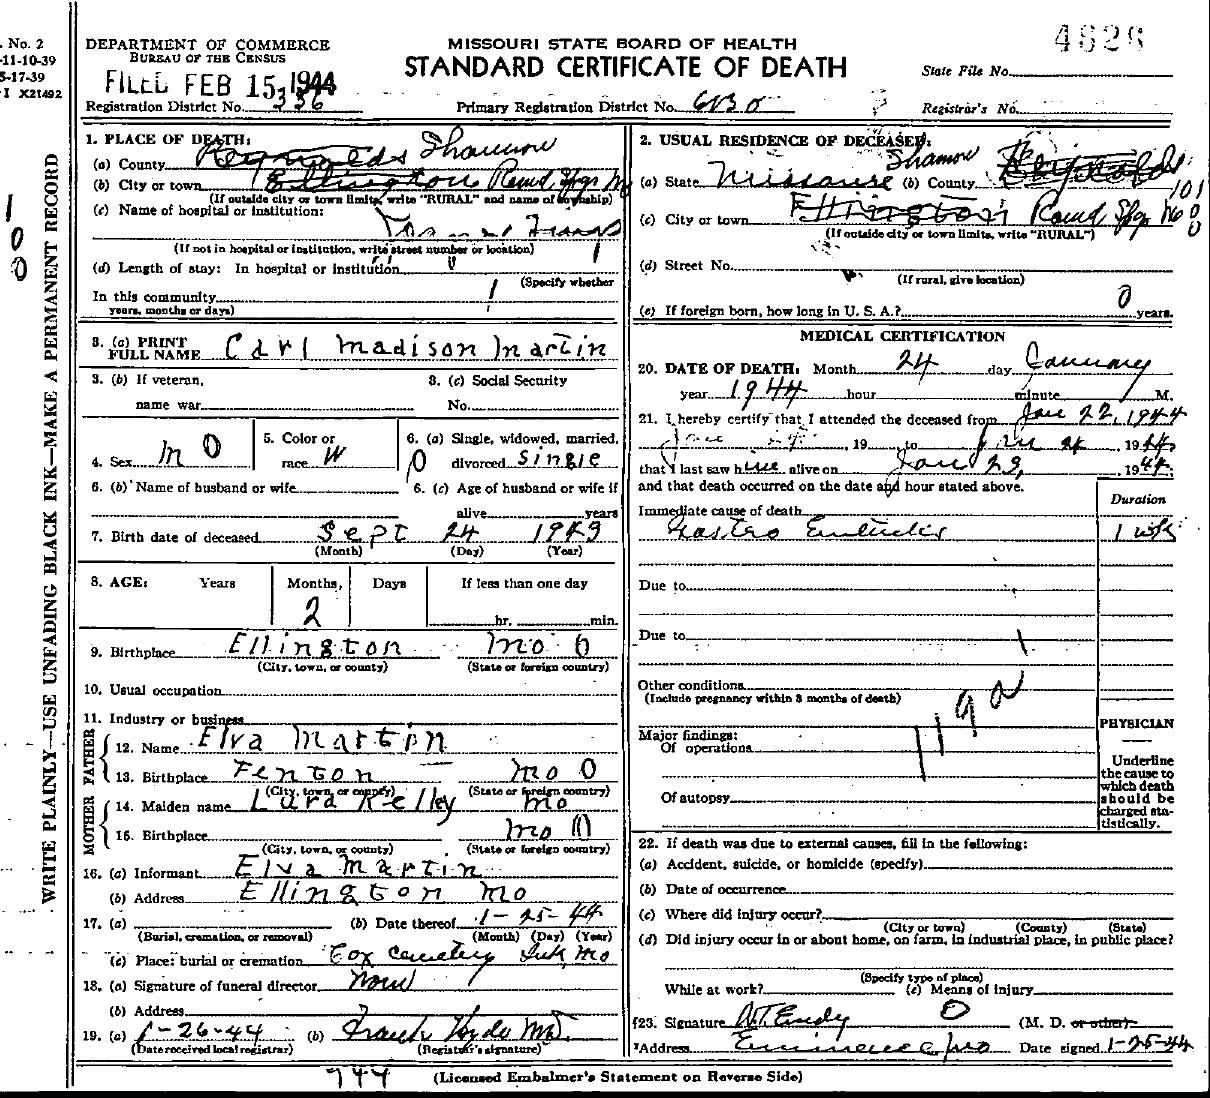 . No. 2
-11-10-39
5-17-39
I X21492
4828
DEPARTMENT OF COMMERCE
BUREAU OF THE CENSUS
MISSOURI STATE BOARD OF HEALTH
STANDARD CERTIFICATE OF DEATH
State File No.
FILED FEB 15 1944
Registration District No. 336
Primary Registration District No.
Registrar's No.
WRITE PLAINLY—USE UNFADING BLACK INK—MAKE A PERMANENT RECORD
1
0
0
1. PLACE OF DEATH:
(a) County Reynolds Shannon
(b) City or town Ellington Round Spgs Mo
(If outside city or town limits, write "RURAL" and name of township)
(c) Name of hospital or institution:
(If not in hospital or institution, write street number or location)
(d) Length of stay: In hospital or institution
(Specify whether
In this community
years, months or days)
3. (a) PRINT FULL NAME Carl Madison Martin
3. (b) If veteran, name war
3. (c) Social Security No.
4. Sex M 0
5. Color or race W
6. (a) Single, widowed, married, divorced Single
6. (b) Name of husband or wife
6. (c) Age of husband or wife if alive years
7. Birth date of deceased Sept 24 1943
(Month) (Day) (Year)
8. AGE: Years Months, Days If less than one day
2 hr. min.
9. Birthplace Ellington Mo 0
(City, town, or county) (State or foreign country)
10. Usual occupation
11. Industry or business
FATHER
12. Name Elva Martin
13. Birthplace Fenton Mo 0
(City, town, or county) (State or foreign country)
MOTHER
14. Maiden name Lura Kelley Mo
15. Birthplace Mo
(City, town, or county) (State or foreign country)
16. (a) Informant Elva Martin
(b) Address Ellington Mo
17. (a) (b) Date thereof 1-25-44
(Burial, cremation, or removal) (Month) (Day) (Year)
(c) Place: burial or cremation Cox Cemetery Mo
18. (a) Signature of funeral director None
(b) Address
19. (a) 1-26-44 (b) Frank Hyde MD.
(Date received local registrar) (Registrar's signature)
2. USUAL RESIDENCE OF DECEASED:
(a) State Missouri (b) County Shannon Reynolds
101
(c) City or town Ellington Round Spgs Mo
(If outside city or town limits, write "RURAL")
(d) Street No.
(If rural, give location)
(e) If foreign born, how long in U. S. A.? 0 years.
MEDICAL CERTIFICATION
20. DATE OF DEATH: Month 24 day January
year 1944 hour minute M.
21. I hereby certify that I attended the deceased from Jan 22, 1944
19 to Jan 24 1944
that I last saw him alive on Jan 23, 1944
and that death occurred on the date and hour stated above.
Duration
Immediate cause of death
Gastro Enteritis 1 wk
Due to
Due to
Other conditions
(Include pregnancy within 3 months of death)
119a
Major findings:
Of operations
Of autopsy
PHYSICIAN
Underline the cause to which death should be charged statistically.
22. If death was due to external causes, fill in the following:
(a) Accident, suicide, or homicide (specify)
(b) Date of occurrence
(c) Where did injury occur?
(City or town) (County) (State)
(d) Did injury occur in or about home, on farm, in industrial place, in public place?
(Specify type of place)
While at work? (e) Means of injury
23. Signature (M. D. or other)
Address Eminence Mo Date signed 1-25-44
744
(Licensed Embalmer's Statement on Reverse Side)